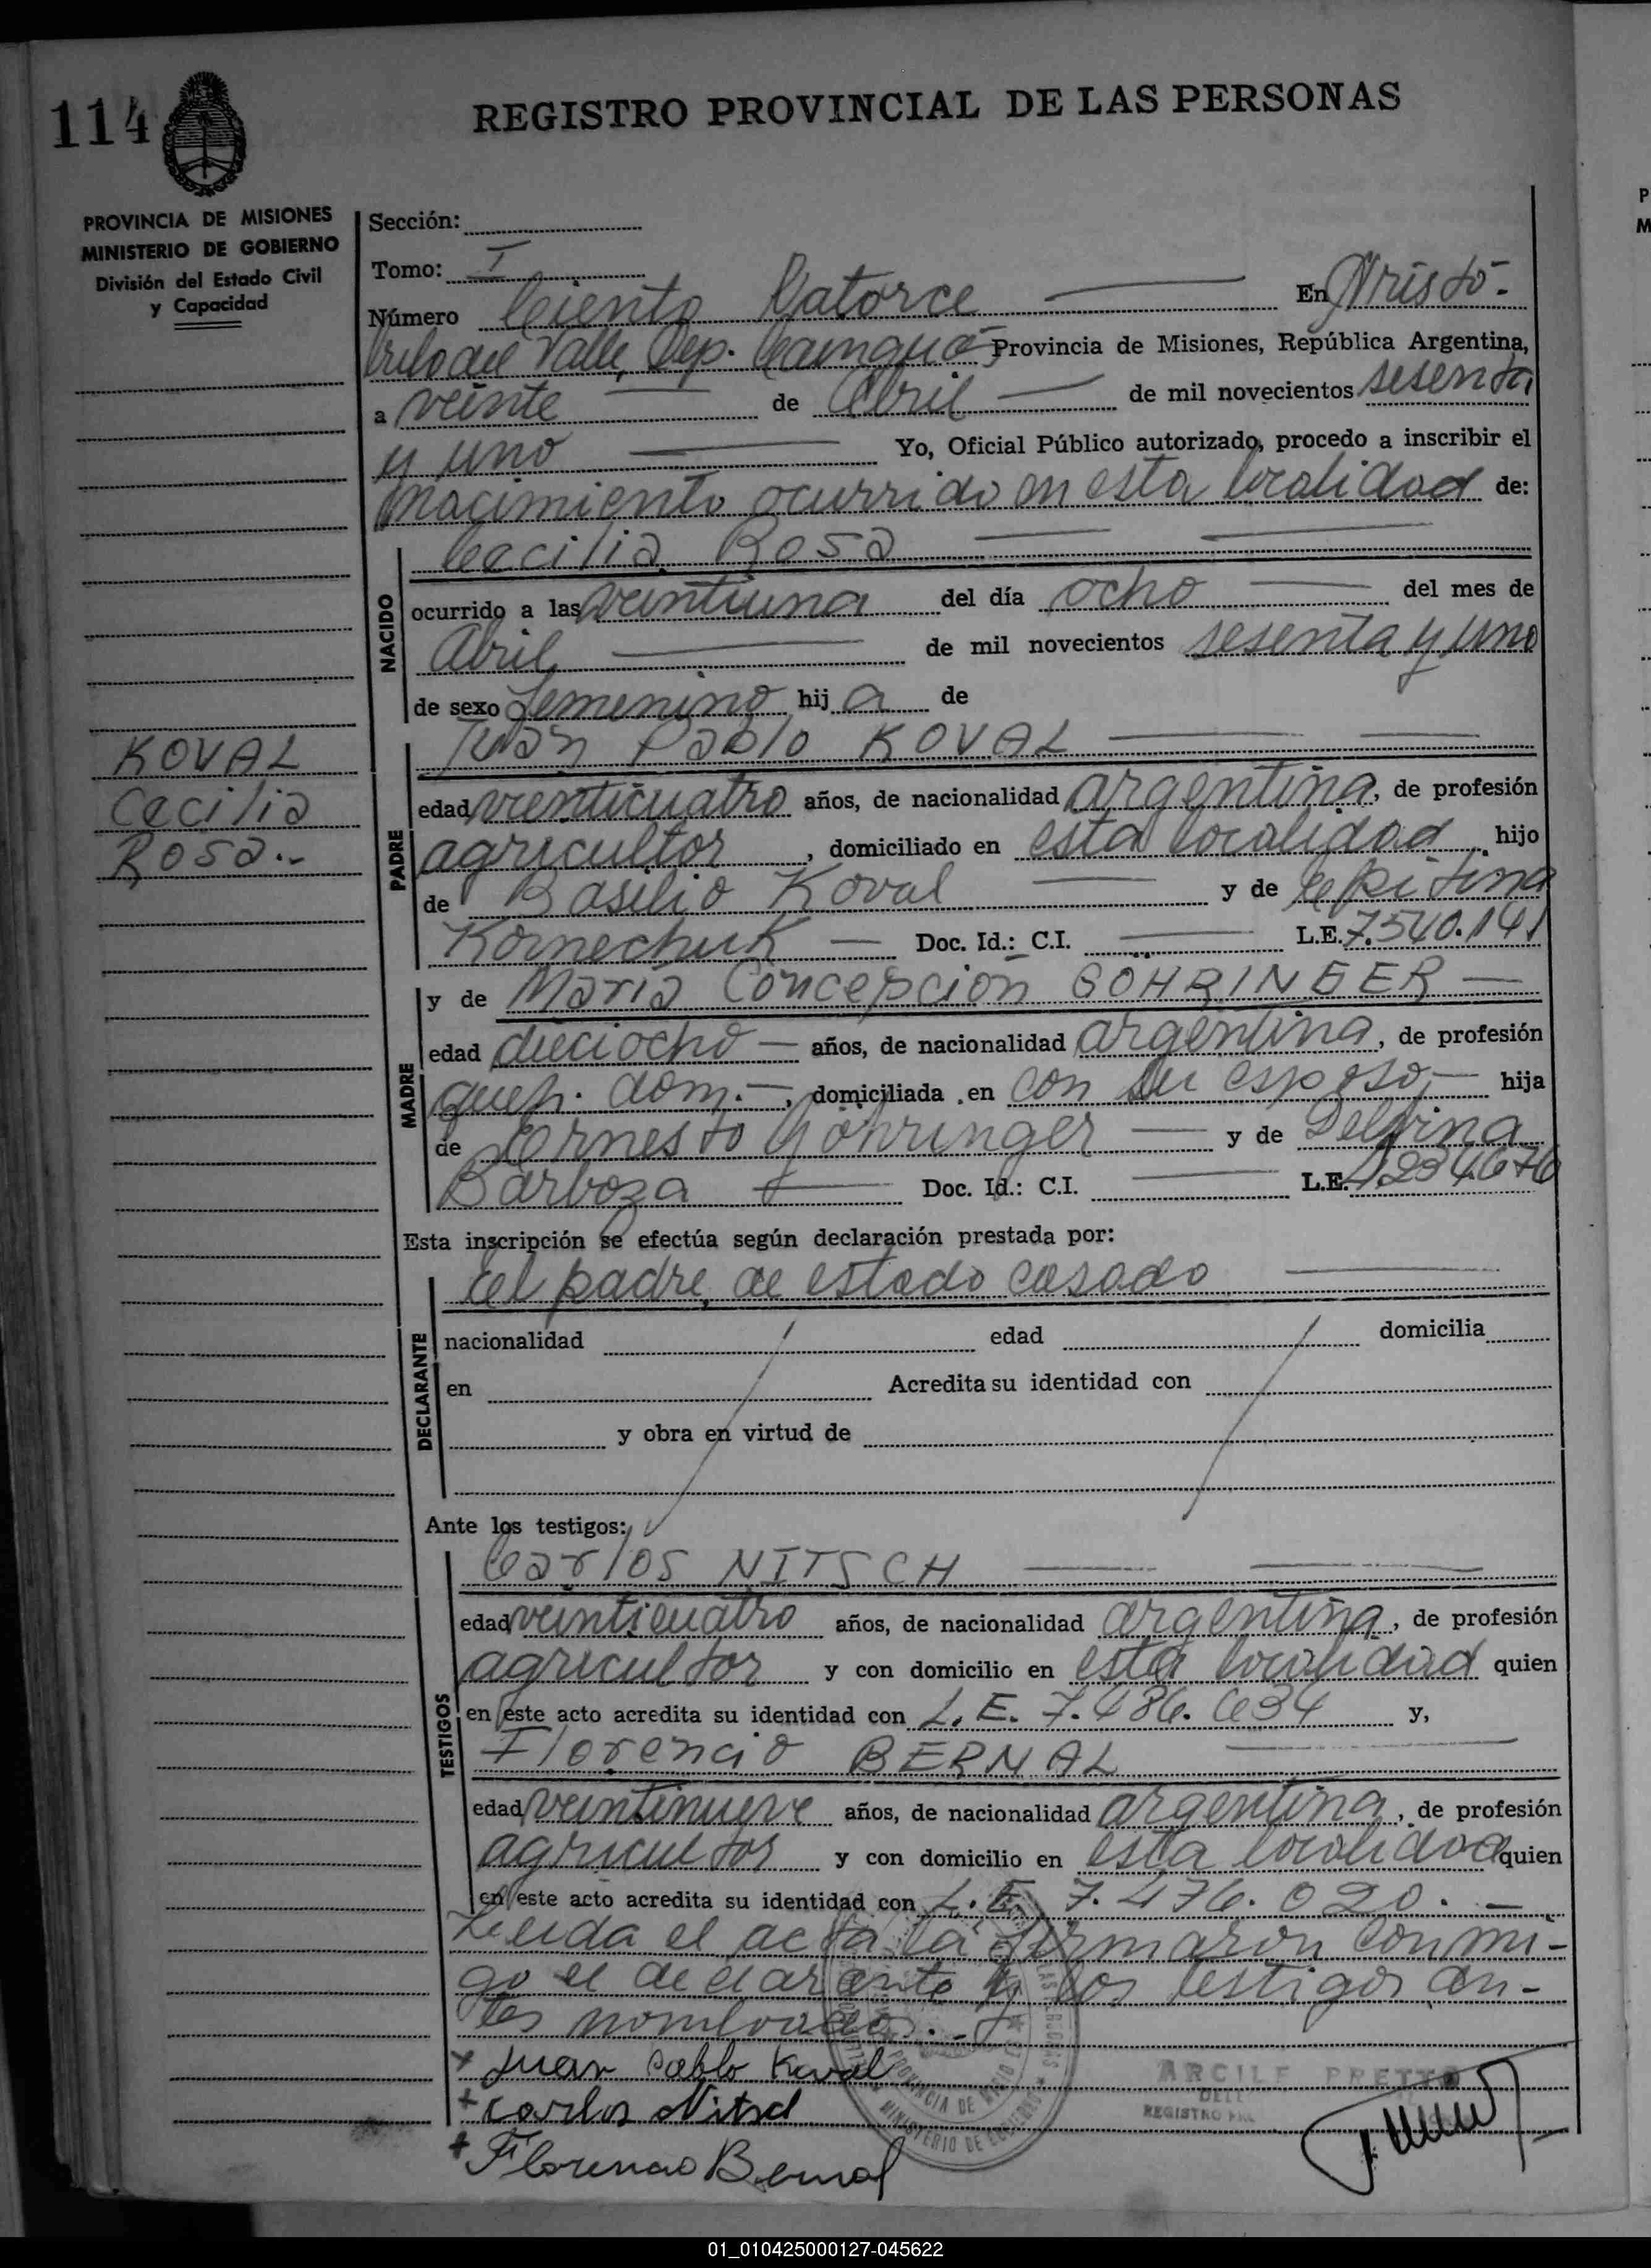 114
REGISTRO PROVINCIAL DE LAS PERSONAS
PROVINCIA DE MISIONES
MINISTERIO DE GOBIERNO
División del Estado Civil
y Capacidad
KOVAL
Cecilia
Rosa.-
Sección:
Tomo: I
Número Ciento Catorce En Aristó-
bulo del Valle, Dep. Cainguá Provincia de Misiones, República Argentina,
a veinte de Abril de mil novecientos sesenta
y uno Yo, Oficial Público autorizado, procedo a inscribir el
nacimiento ocurrido en esta localidad de:
Cecilia Rosa
NACIDO
ocurrido a las veintiuna del día ocho del mes de
Abril de mil novecientos sesenta y uno
de sexo femenino hij a de
Juan Pablo KOVAL
PADRE
edad veinticuatro años, de nacionalidad argentina, de profesión
agricultor, domiciliado en esta localidad hijo
de Basilio Koval y de
Kornechuk Doc. Id.: C.I. L.E. 7.540.141
y de María Concepción GÖHRINGER
MADRE
edad dieciocho años, de nacionalidad argentina, de profesión
queh. dom.-, domiciliada en con su esposo, hija
de Ernesto Göhringer y de Delfina
Barboza Doc. Id.: C.I. L.E.
Esta inscripción se efectúa según declaración prestada por:
El padre, de estado casado
DECLARANTE
nacionalidad edad domicilia
en Acredita su identidad con
y obra en virtud de
Ante los testigos:
Carlos NITSCH
TESTIGOS
edad veinticuatro años, de nacionalidad argentina, de profesión
agricultor y con domicilio en esta localidad quien
en este acto acredita su identidad con L.E. 7.486.634 y,
Florencio BERNAL
edad veintinueve años, de nacionalidad argentina, de profesión
agricultor y con domicilio en esta localidad quien
en este acto acredita su identidad con L.E. 7.476.020.-
Leída el acta la firmaron conmi-
go el declarante y los testigos an-
tes nombrados.-
+ Juan Pablo Koval
+ Carlos Nitsch
+ Florencio Bernal
ARCILE PRETTO
REGISTRO
PROVINCIA DE
MINISTERIO DE
01_010425000127-045622